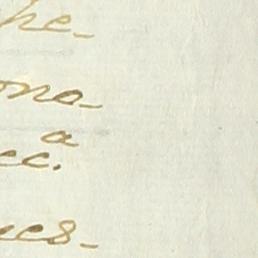 he-
ona-
a
ec.
ues-